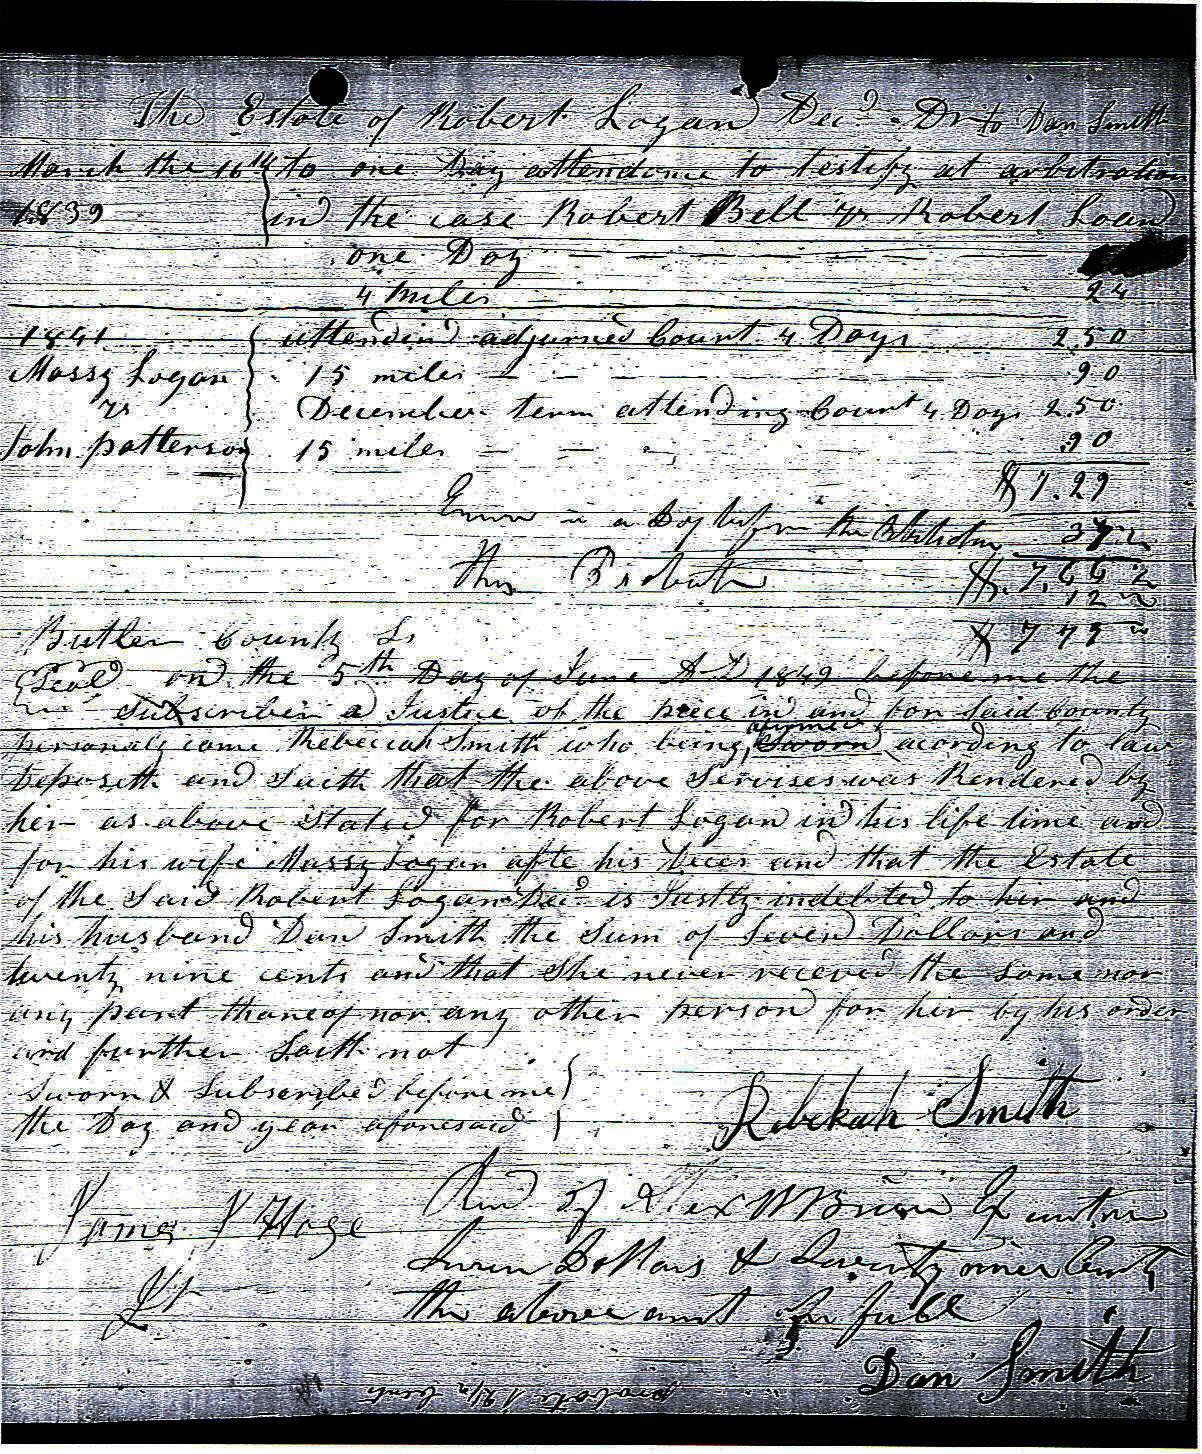 The Estate of Robert Logan Decd Dr to Dan Smith
March the 16th to one Day attendance to testify at arbitration
1839 in the case Robert Bell vs Robert Loan
one Day
4 miles 24
1841 attendind adjurned Court 4 Days 2.50
Massy Logan 15 miles 90
vs December term attending Court 4 Days 2.50
John patterson 15 miles .90
$ 7.29
in a Day before the 37 2
This Probate $ 7.66 2
12 2
$ 7 79
Butler County Ss
Seal on the 5th Day of June AD 1849 before me the
Subscriber a Justice of the peece in and for Said County
personaly came Rebeccah Smith who being affirmed Sworn acording to law
Deposith and Saith that the above Servises was Rendered by
her as above Stated for Robert Logan in his life time and
for his wife Massy Logan afte his Deces and that the Estate
of the Said Robert Logan Decd is Justly indebted to her and
his husband Dan Smith the Sum of Seven Dollars and
twenty nine cents and that She never receved the same nor
any part thareof nor any other person for her by his order
and further Saith not
Sworn & Subscribed before me
the Day and year aforesaid
Rebekah Smith
James Hoge
Recd of Alex Executor
Seven Dollars & Seventy nine Cents
the above amt In full
Dan Smith
probate 12 1/2 Cents